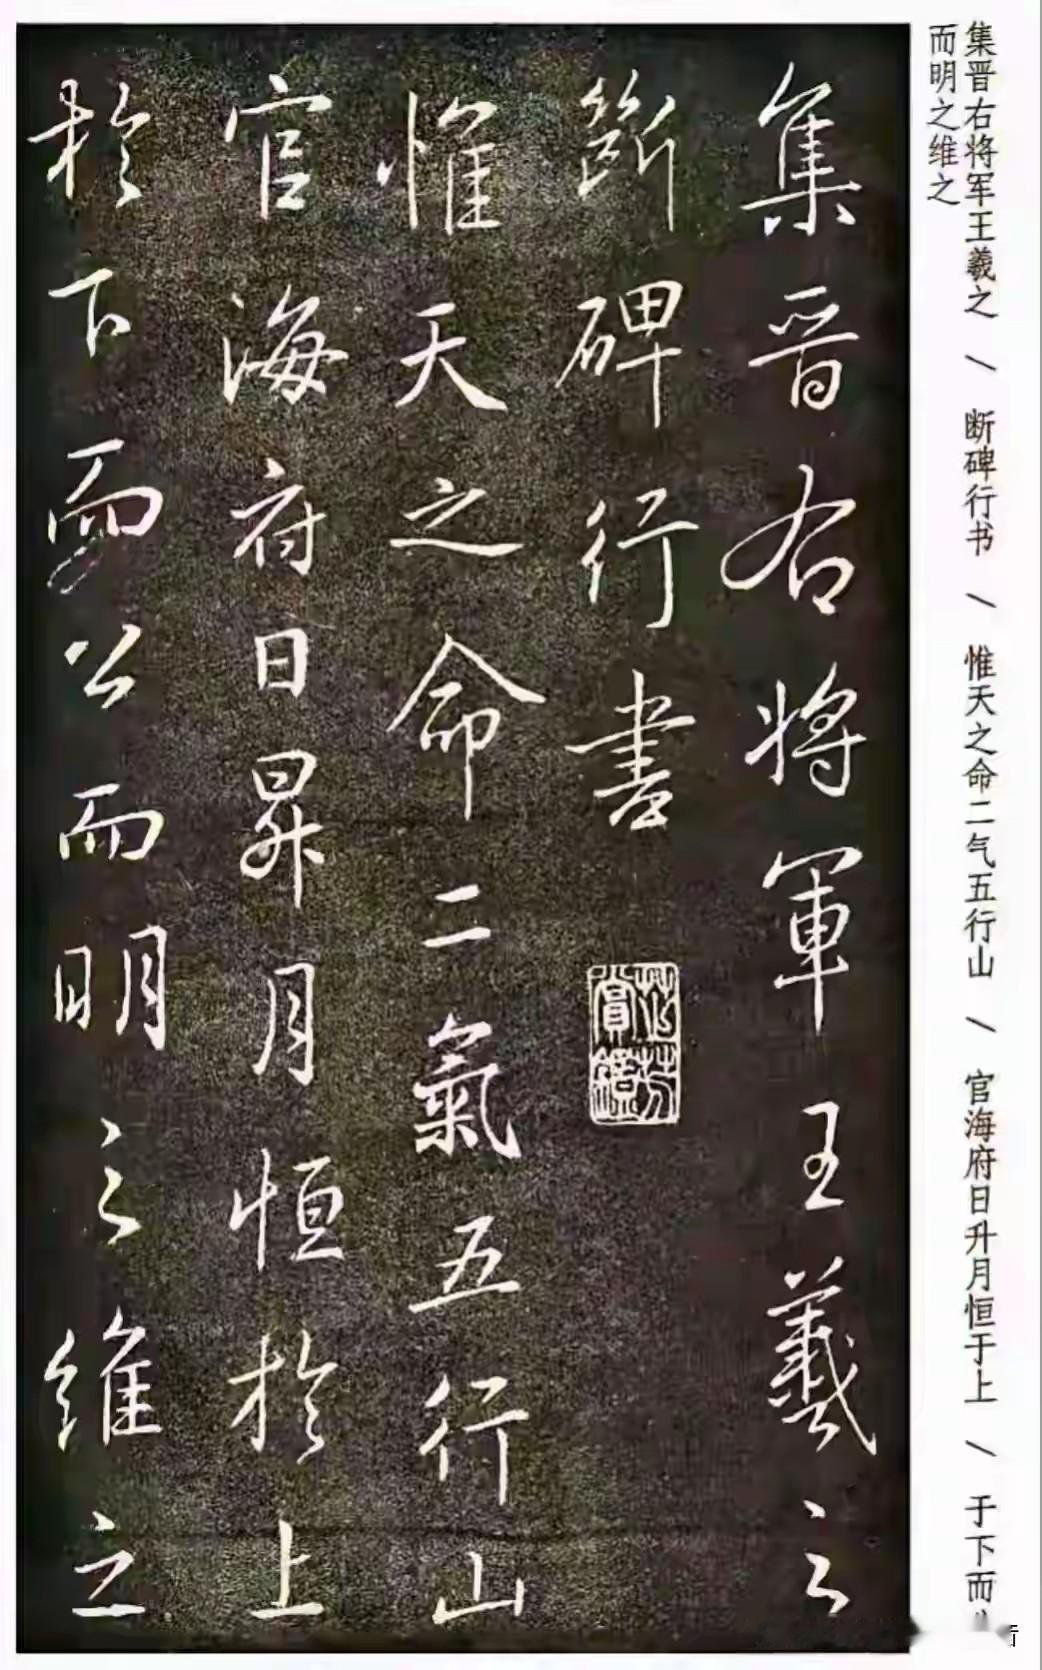 集晋右将军王羲之 / 断碑行书 / 惟天之命二气五行山 / 官海府日升月恒于上 / 于下而
而明之维之
集晋右将軍王羲之
斷碑行書
惟天之命二氣五行山
官海府日昇月恒於上
於下而公而明之維之